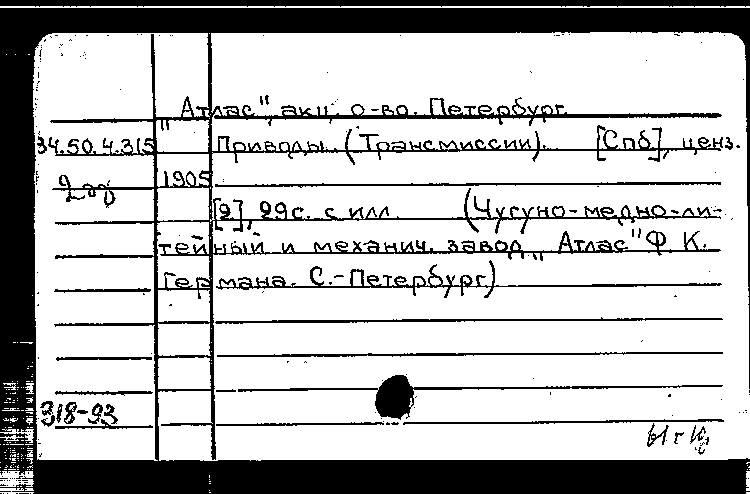 „Атлас", акц. о-во. Петербург.
34.50.4.315 Приводы. (Трансмиссии). [Спб], ценз.
1905
[2], 29с. с илл. (Чугуно-медно-ли-
тейный и механич. завод „Атлас" Ф. К.
Германа. С.-Петербург)
318-93